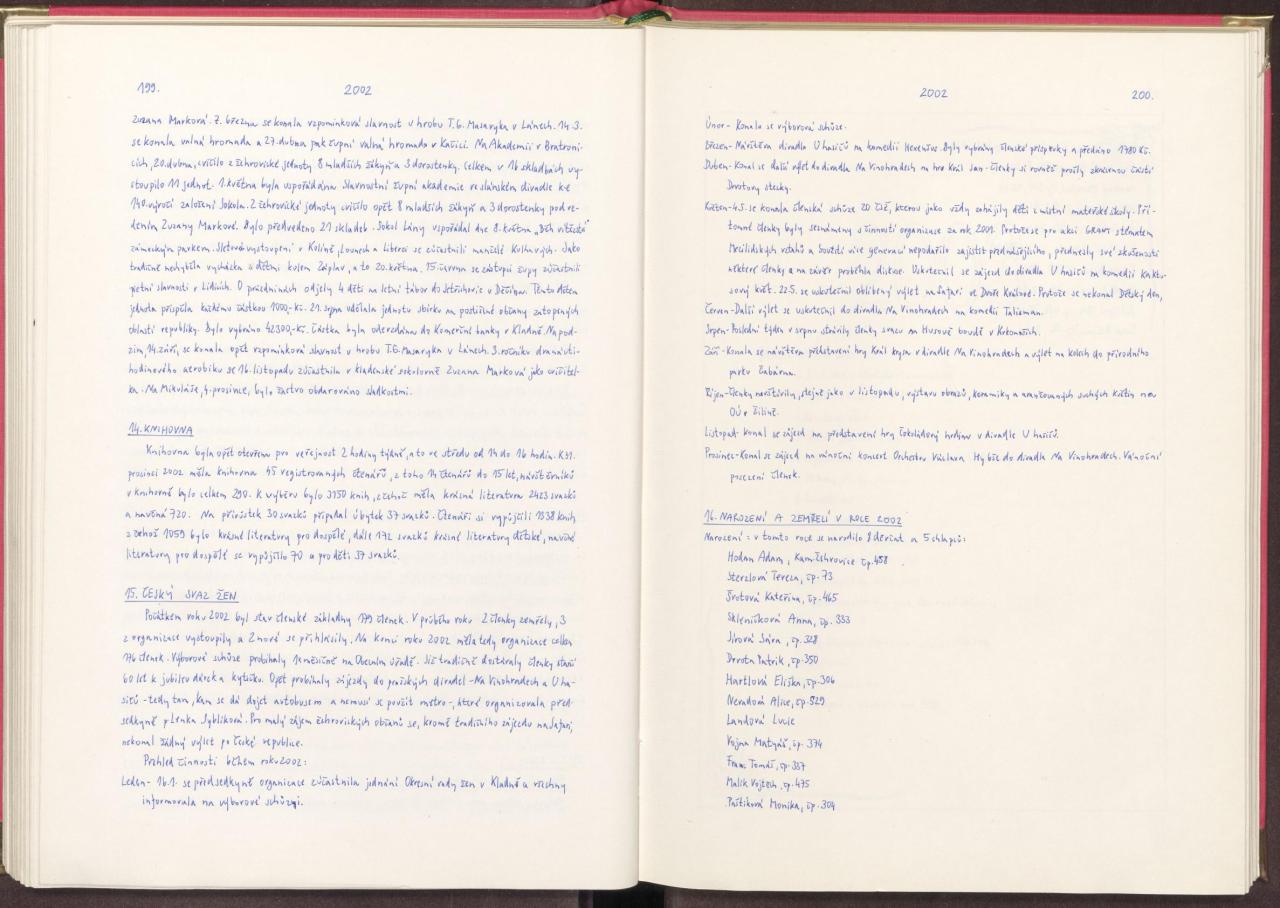 199.
2002
Zuzana Marková. 7. března se konala vzpomínková slavnost u hrobu T.G. Masaryka v Lánech. 14.3.
se konala valná hromada a 27. dubna pak župní valná hromada v Kačici. Na Akademii v Bratroni-
cích, 20. dubna, cvičilo z žehrovické jednoty 8 mladších žákyň a 3 dorostenky. Celkem v 16 skladbách vy-
stoupilo 11 jednot. 1. května byla uspořádána Slavnostní župní akademie ve slánském divadle k
140. výročí založení Sokola. Z žehrovické jednoty cvičilo opět 8 mladších žákyň a 3 dorostenky pod ve-
dením Zuzany Markové. Bylo předvedeno 21 skladeb. Sokol Lány uspořádal dne 8. května "Běh vítězství
zámeckým parkem. Sletová vystoupení v Kolíně, Lounech a Liberci se zúčastnili manželé . Jako
tradičně nechyběla vycházka s dětmi kolem Záplav, a to 20. května. 15. června se zástupci župy zúčastnili
pietní slavnosti v Lidicích. O prázdninách odjely 4 děti na letní tábor do Jetřichovic u Děčína. Těmto dětem
jednota přispěla každému částkou 1000,-Kč. 21. srpna udělala jednota sbírku na postižené občany zatopených
oblastí republiky. Bylo vybráno 42300,-Kč. Částka byla odevzdána do Komerční banky v Kladně. Na pod-
zim, 14. září, se konala opět vzpomínková slavnost u hrobu T.G. Masaryka v Lánech. 3. ročníku dvanácti-
hodinového aerobiku se 16. listopadu zúčastnila v kladenské sokolovně Zuzana Marková jako cvičitel-
ka. Na Mikuláše, 4. prosince, bylo žactvo obdarováno sladkostmi.
14. KNIHOVNA
Knihovna byla opět otevřena pro veřejnost 2 hodiny týdně, a to ve středu od 14 do 16 hodin. K 31.
prosinci 2002 měla knihovna 45 registrovaných čtenářů, z toho 14 čtenářů do 15 let, návštěvníků
v knihovně bylo celkem 290. K výběru bylo 3150 knih, z čehož měla krásná literatura 2423 svazků
a naučná 720. Na přírůstek 30 svazků připadal úbytek 37 svazků. Čtenáři si vypůjčili 1338 knih
z čehož 1059 bylo krásné literatury pro dospělé, dále 172 svazků krásné literatury dětské, naučné
literatury pro dospělé se vypůjčilo 70 a pro děti 37 svazků.
15. ČESKÝ SVAZ ŽEN
Počátkem roku 2002 byl stav členské základny 179 členek. V průběhu roku 2 členky zemřely, 3
z organizace vystoupily a 2 nové se přihlásily. Na konci roku 2002 měla tedy organizace celkem
176 členek. Výborové schůze probíhaly 1x měsíčně na Obecním úřadě. Již tradičně dostávaly členky starší
60 let k jubileu dárek a kytičku. Opět probíhaly zájezdy do pražských divadel - Na Vinohradech a U ha-
sičů - tedy tam, kam se dá dojet autobusem a nemusí se použít metro -, které organizovala před-
sedkyně p. Lenka Syblíková. Pro malý zájem žehrovických občanů se, kromě tradičního zájezdu na Safari,
nekonal žádný výlet po České republice.
Přehled činnosti během roku 2002:
Leden - 16.1. se předsedkyně organizace zúčastnila jednání Okresní rady žen v Kladně a všechny
informovala na výborové schůzi.
2002
200.
Únor - Konala se výborová schůze.
Březen - Návštěva divadla U hasičů na komedii . Byly vybrány členské příspěvky a předáno 1780 Kč.
Duben - Konal se další výlet do divadla Na Vinohradech na hru Král Jan - členky si rovněž prošly zkrácenou částí
Drvotovy stezky.
Květen - 4.5. se konala členská schůze ZO ČSŽ, kterou jako vždy zahájily děti z místní mateřské školy. Pří-
tomné členky byly seznámeny s činností organizace za rok 2001. Protože se pro akci GRANT s tématem
Mezilidských vztahů a soužití více generací nepodařilo zajistit přednášejícího, přednesly své zkušenosti
některé členky a na závěr proběhla diskuse. Uskutečnil se zájezd do divadla U hasičů na komedii Kaktu-
sový květ. 22.5. se uskutečnil oblíbený výlet na Safari ve Dvoře Králové. Protože se nekonal Dětský den,
Červen - Další výlet se uskutečnil do divadla Na Vinohradech na komedii Talisman.
Srpen - Poslední týden v srpnu strávily členky svazu na Husově boudě v Krkonoších.
Září - Konala se návštěva představení hry Král krysa v divadle Na Vinohradech a výlet na kolech do přírodního
parku Džbánu.
Říjen - Členky navštívily, stejně jako v listopadu, výstavu obrazů, keramiky a aranžovaných suchých květin na
OÚ v Žilině.
Listopad - Konal se zájezd na představení hry Čokoládový hrdina v divadle U hasičů.
Prosinec - Konal se zájezd na vánoční koncert Orchestru Václava Hybše do divadla Na Vinohradech. Vánoční
posezení členek.
16. NAROZENÍ A ZEMŘELÍ V ROCE 2002
Narození: v tomto roce se narodilo 8 děvčat a 5 chlapců:
Hodan Adam, Kam. Žehrovice čp. 458
Sterzlová Tereza, čp. 73
Šrotová Kateřina, čp. 465
Skleničková Anna, čp. 333
Jírová Sára, čp. 328
Drvota Patrik, čp. 350
Hartlová Eliška, čp. 306
Nevadová Alice, čp. 529
Landová Lucie
Vojna Matyáš, čp. 374
Franc Tomáš, čp. 387
Malík Vojtěch, čp. 475
Paštiková Monika, čp. 304